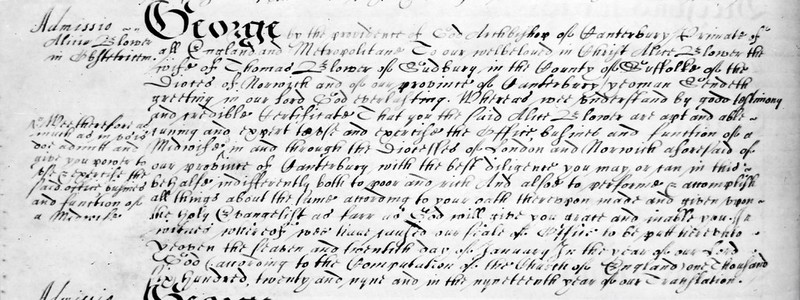 Admissio
Alicie Blower
in Obstetricem.
George by the providence of God Archbishop of Canterbury Primate of
all England and Metropolitane To our welbeloved in Christ Alice Blower the
wife of Thomas Blower of Sudbury, in the County of Suffolke of the
Dioces of Norwich and of our province of Canterbury yeoman Sendeth
greeting in our Lord God everlasting. Whereas wee understand by good testimony
and credible Certificate That you the said Alice Blower are apt and able
cuning and expert to use and exercise the Office busines and function of a
Midwife in and through the Diocesses of London and Norwich aforesaid of
our province of Canterbury with the best diligence you may or can in this
behalfe indifferently both to poor and rich And alsoe to performe & accomplish
all things about the same according to your oath thereupon made and given upon
the holy Evangelist as farr as God will give you grace and inable you In
witnes whereof wee have caused our seale of Office to be putt hereunto
yeoven the seaven and twentith day of January In the year of our Lord
God (according to the Computation of the Church of England) one thousand
six hundred, twenty and nyne and in the nyneteenth year of our Translation.
Wee therefore as
much as in us is
doe admitt and
give you power to
use & exercise the
said office busines
and function of
a Midwife
Admissio
George